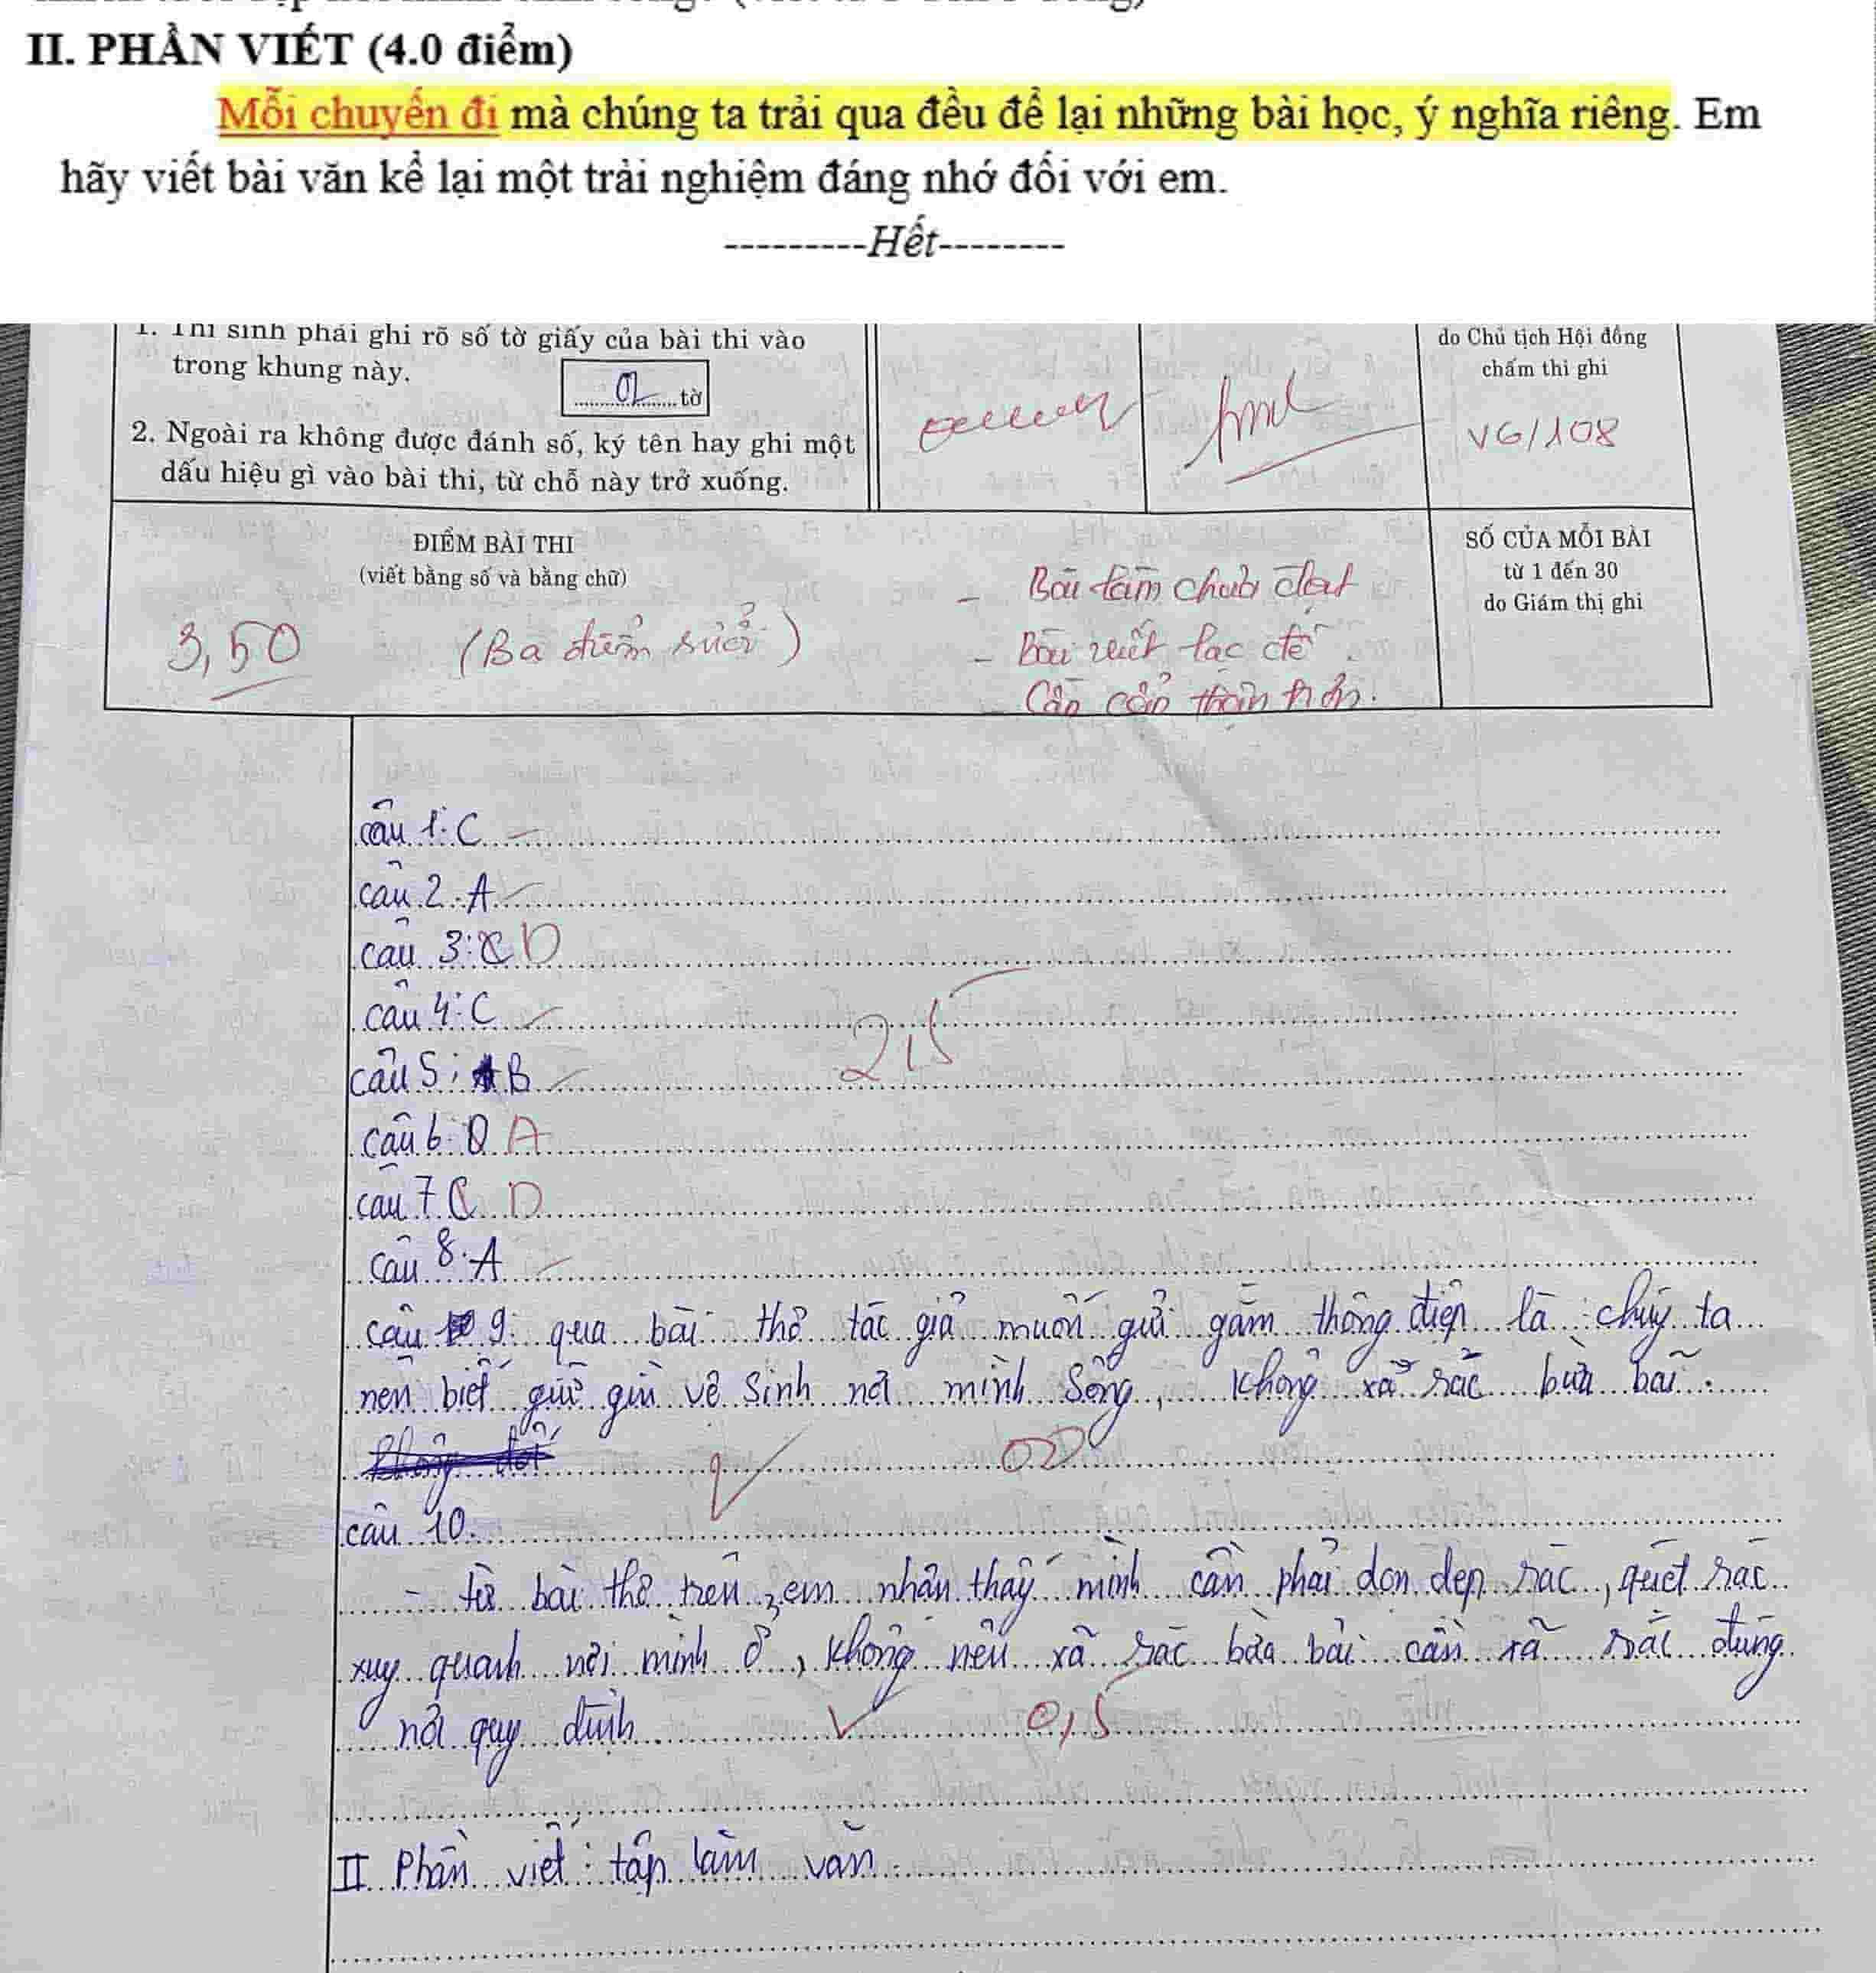 II. PHẦN VIẾT (4.0 điểm)
Mỗi chuyến đi mà chúng ta trải qua đều để lại những bài học, ý nghĩa riêng. Em
hãy viết bài văn kể lại một trải nghiệm đáng nhớ đối với em.
---------Hết--------
1. Thí sinh phải ghi rõ số tờ giấy của bài thi vào
trong khung này.
02 tờ
2. Ngoài ra không được đánh số, ký tên hay ghi một
dấu hiệu gì vào bài thi, từ chỗ này trở xuống.
do Chủ tịch Hội đồng
chấm thi ghi
VG/108
ĐIỂM BÀI THI
(viết bằng số và bằng chữ)
3,50 (Ba điểm rưỡi)
- Bài làm chưa đạt
- Bài viết lạc đề.
- Cần cẩn thận hơn.
SỐ CỦA MỖI BÀI
từ 1 đến 30
do Giám thị ghi
câu 1: C
câu 2: A
câu 3: C D
câu 4: C
2,5
câu 5: B
câu 6: A
câu 7 C D
câu 8: A
câu 9: qua bài thơ tác giả muốn gửi gắm thông điệp là chúg ta
nên biết giữ gìn vệ sinh nơi mình sống, không xả rác bừa bãi.
câu 10:
- từ bài thơ trên, em nhận thấy mình cần phải dọn dẹp rác, quét rác
xuy quanh nơi mình ở, không nên xả rác bừa bãi cần xả rác đúng
nơi quy định
0,5
II Phần viết: tập làm văn